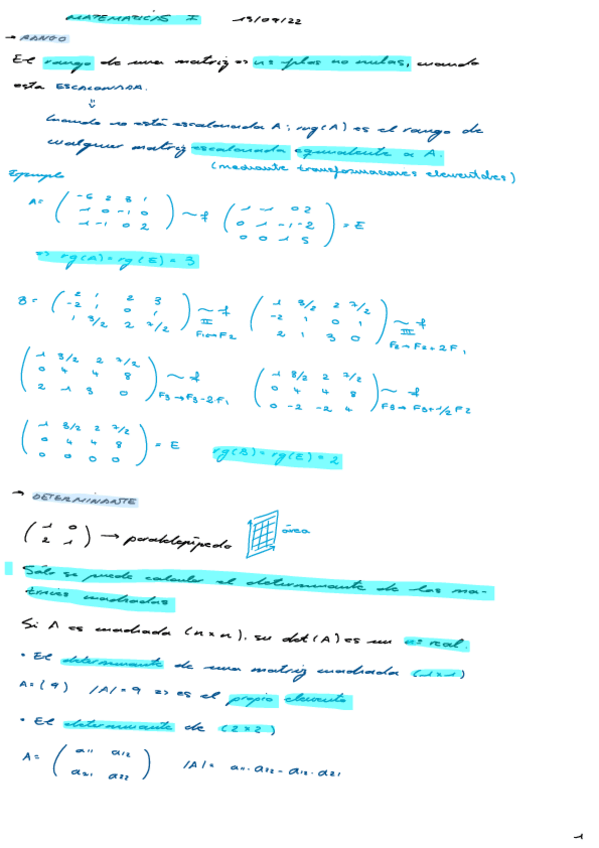 MATEMATICAS I 19/09/22
→ RANGO
El rango de una matriz es nº filas no nulas, cuando
esta ESCALONADA.
⇓
Cuando no está escalonada A; rg(A) es el rango de
cualquier matriz escalonada equivalente a A.
(mediante transformaciones elementales)
Ejemplo
A= ( -6 2 8 1
1 0 -1 0
1 -1 0 2 ) ~ f ( 1 -1 0 2
0 1 -1 -2
0 0 1 5 ) = E
=> rg(A) = rg(E) = 3
B = ( 2 1 2 3
-2 1 0 1
1 3/2 2 7/2 ) ~ f II F1↔F2 ( 1 3/2 2 7/2
-2 1 0 1
2 1 3 0 ) ~ f III F2→F2+2F1
( 1 3/2 2 7/2
0 4 4 8
2 1 3 0 ) ~ f F3→F3-2F1 ( 1 3/2 2 7/2
0 4 4 8
0 -2 -2 4 ) ~ f F3→F3+1/2F2
( 1 3/2 2 7/2
0 4 4 8
0 0 0 0 ) = E rg(B) = rg(E) = 2
→ DETERMINANTE
( 1 0
2 1 ) → paralelepípedo área
Sólo se puede calcular el determinante de las ma-
trices cuadradas
Si A es cuadrada (n×n), su det(A) es un nº real.
• El determinante de una matriz cuadrada (1×1)
A=(9) |A|=9 => es el propio elemento
• El determinante de (2×2)
A= ( a11 a12
a21 a22 ) |A|= a11·a22 - a12·a21
1